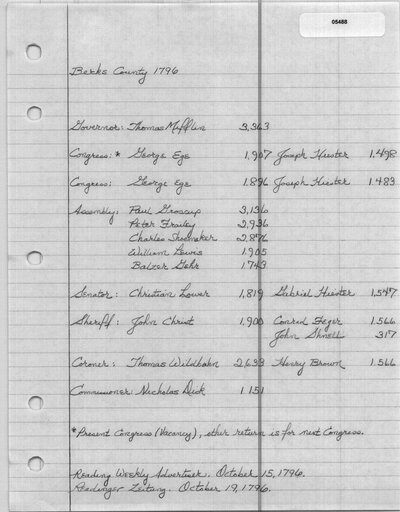 05488
Berks County 1796
Governor: Thomas Mifflin 3,363
Congress:* George Ege 1,907 Joseph Hiester 1,498
Congress: George Ege 1,896 Joseph Hiester 1,483
Assembly: Paul Groscup 3,136
Peter Frailey 2,936
Charles Shoemaker 2,876
William Lewis 1,905
Balzer Gehr 1,743
Senator: Christian Lower 1,819 Gabriel Hiester 1,547
Sheriff: John Christ 1,900 Conrad Feger 1,566
John 317
Coroner: Thomas Wildbahn 2,633 Henry Brown 1,566
Commissioner: Nicholas Dick 1,151
*Present Congress (Vacancy), other return is for next Congress.
Reading Weekly Advertiser. October 15, 1796.
Readinger Zeitung. October 19, 1796.